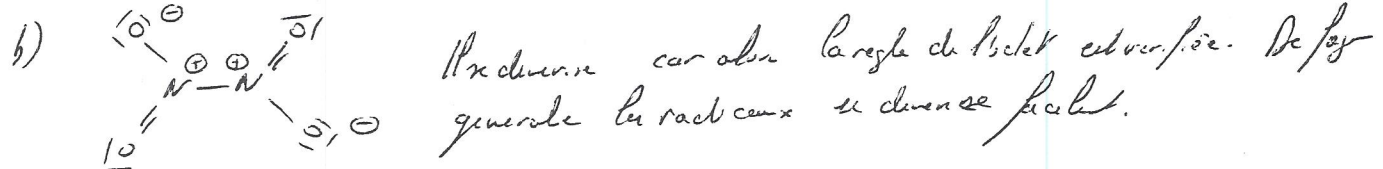 b)
O ⊖ O
N ⊕ ⊕ N
O O ⊖
Il se dimerise car alors la regle de l'octet est verifiée. De façon
generale les radicaux se dimerise facilement.